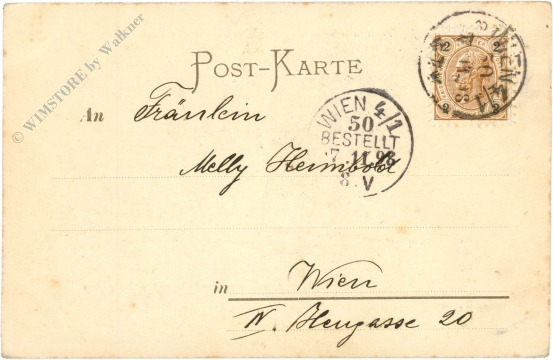 © WIMSTORE by Walkner
POST-KARTE
An Fräulein
WIEN 4/1
50
BESTELLT
7. 11. 98
8. V
Melly Heimbold
in Wien
IV. Heugasse 20
WIEN 4/1